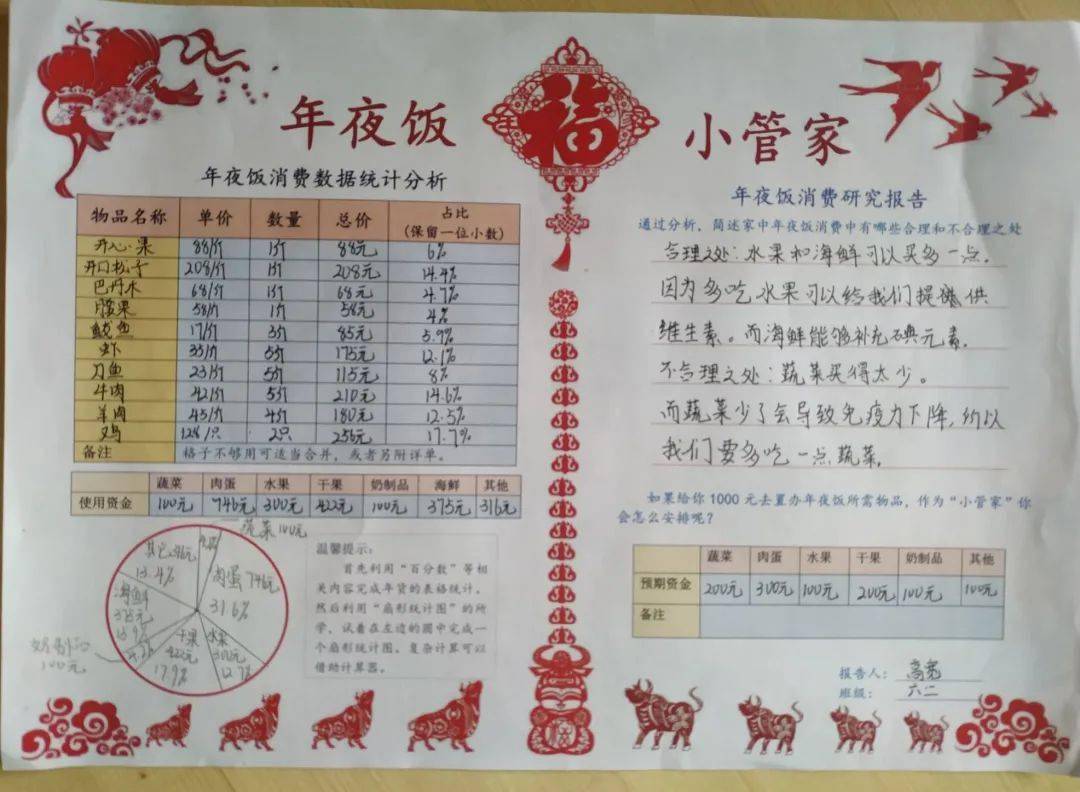 年夜饭
福
小管家
年夜饭消费数据统计分析
物品名称 单价 数量 总价 占比(保留一位小数)
开心果 88/斤 1斤 88元 6%
开口松子 208/斤 1斤 208元 14.4%
巴丹木 68/斤 1斤 68元 4.7%
腰果 58/斤 1斤 58元 4%
鱼 17/斤 3斤 85元 5.9%
虾 35/斤 5斤 175元 12.1%
刀鱼 23/斤 5斤 115元 8%
牛肉 42/斤 5斤 210元 14.6%
羊肉 45/斤 4斤 180元 12.5%
鸡 128/只 2只 256元 17.7%
备注 格子不够用可适当合并，或者另附详单。
蔬菜 肉蛋 水果 干果 奶制品 海鲜 其他
使用资金 100元 746元 300元 422元 100元 375元 316元
蔬菜100元
肉蛋746元
31.6%
水果
300元
12.7%
干果
422元
17.9%
4.2%
100元
海鲜
375元
15.9%
13.4%
温馨提示：
首先利用“百分数”等相
关内容完成年货的表格统计。
然后利用“扇形统计图”的所
学，试着在左边的圆中完成一
个扇形统计图。复杂计算可以
借助计算器。
年夜饭消费研究报告
通过分析，简述家中年夜饭消费中有哪些合理和不合理之处
合理之处：水果和海鲜可以买多一点。
因为多吃水果可以给我们提供
维生素。而海鲜能够补充碘元素。
不合理之处：蔬菜买得太少。
而蔬菜少了会导致免疫力下降，所以
我们要多吃一点蔬菜。
如果给你1000元去置办年夜饭所需物品，作为“小管家”你
会怎么安排呢？
蔬菜 肉蛋 水果 干果 奶制品 其他
预期资金 200元 300元 100元 200元 100元 100元
备注
报告人：高宽
班级：六二